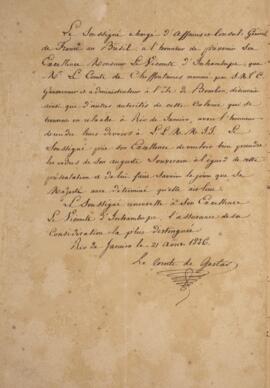 Le Soussigné chargé d'Affaires et Consul Général
de France au Brésil, a l'honneur de prévenir Son
Excellence Monsieur Le Vicomte d'Inhambupe, que
Mr. Le Comte de Cheffontaines nommé par S. M. T. C.
Gouverneur et administrateur à l'Isle de Bourbon, désirerait
ainsi que d'autres autorités de cette Colonie qui se
trouvent en relâche à Rio de Janeiro, avoir l'honneur
de rendre leurs devoirs à L.L. M.M. I.I. Le
Soussigné prie son Excellence de vouloir bien prendre
les ordres de son auguste Souverain à l'égard de cette
présentation et de lui faire savoir le jour que Sa
Majesté aura déterminé qu'elle ait lieu.
Le Soussigné renouvelle à Son Excellence
Le Vicomte d'Inhambupe, l'assurance de sa
Considération la plus distinguée
Rio de Janeiro le 21 1826.
Le Comte de Gestas